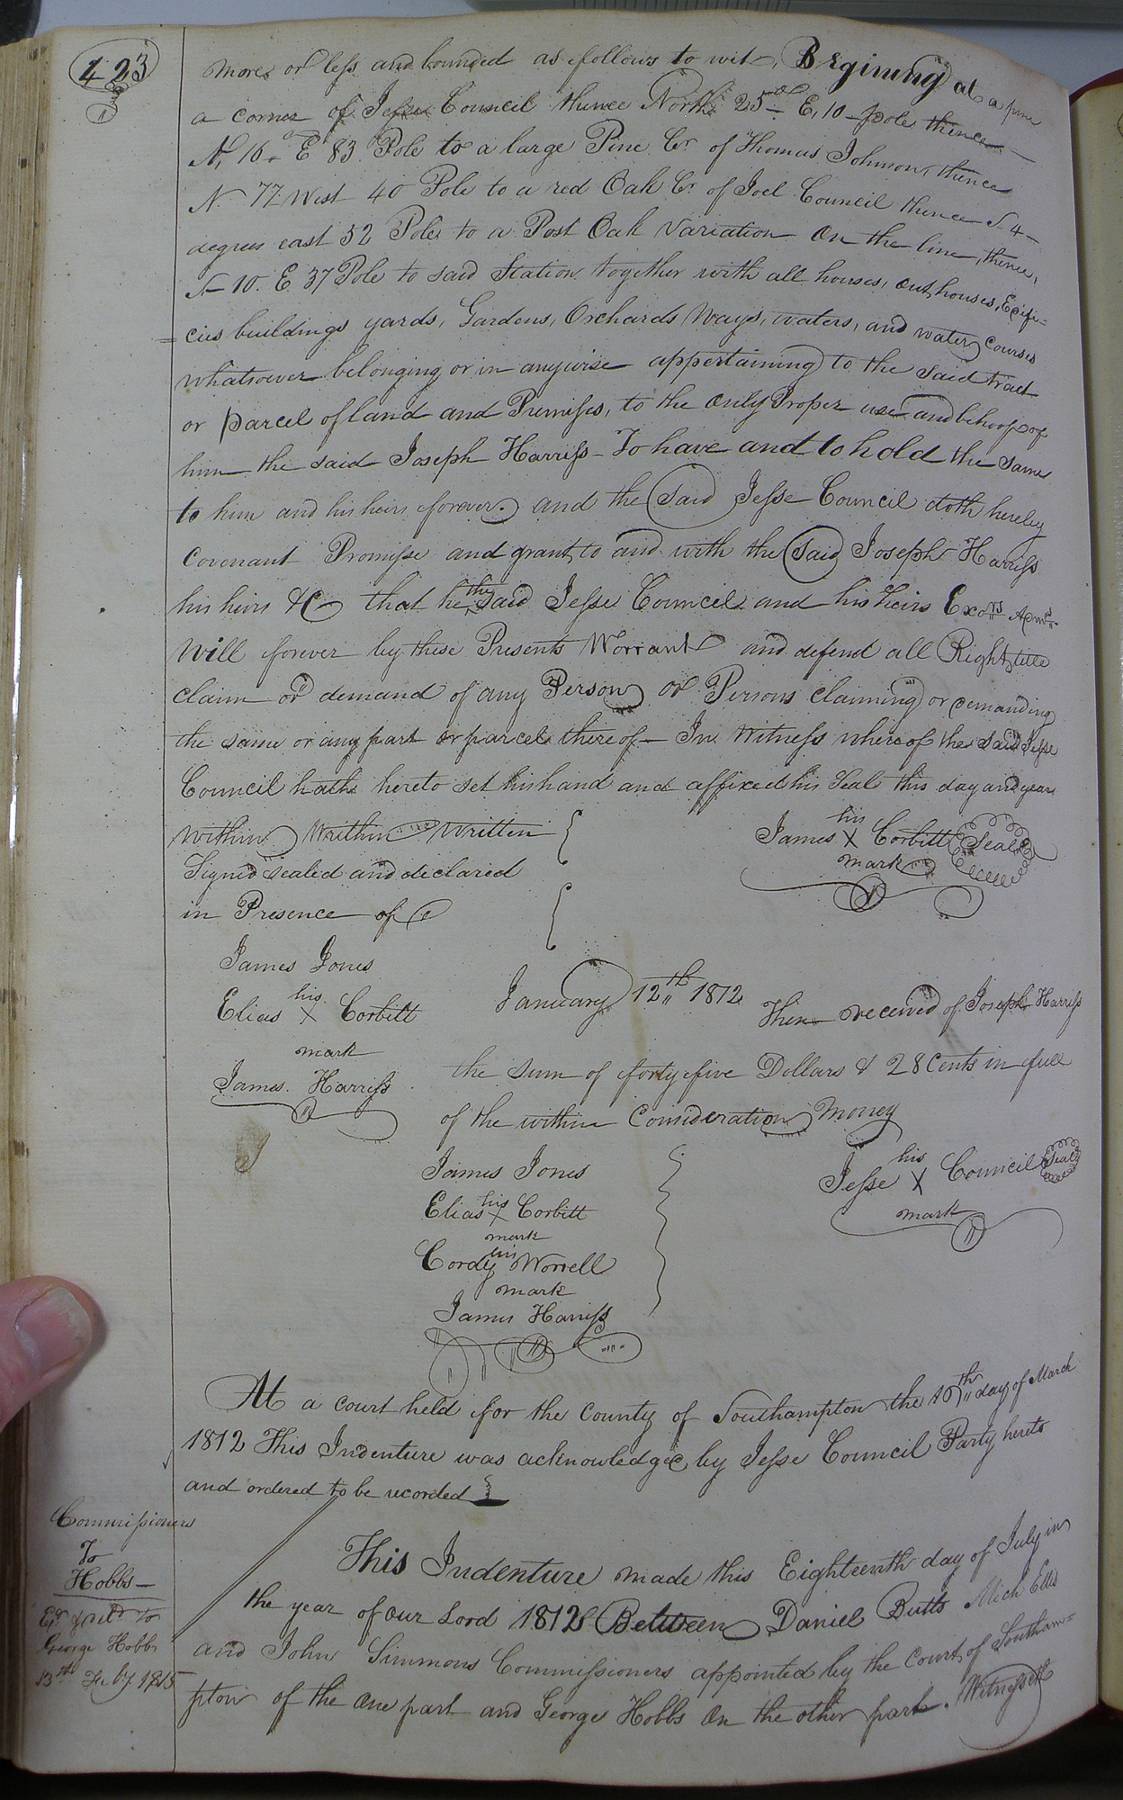 423
more or less and bounded as follows to wit, Begining at a pine
a corner of Jesse Council thence North 25° E, 10 pole thence
N, 16° E 83 Pole to a large Pine Cr of Thomas Johnson, thence
N 77 West 40 Pole to a red Oak Cr. of Joel Council thence S. 4
degrees east 52 Poles to a Post Oak Variation On the line, thence,
S 10. E 37 Pole to said Station, together with all houses, outhouses, Edifi=
=cies buildings yards, Gardens, Orchards Ways, waters, and water courses
whatsoever belonging or in anywise appertaining to the said tract
or parcel of land and Premises, to the Only Proper use and behoof of
him the said Joseph Harriss To have and to hold the same
to him and his heirs forever. and the said Jesse Council doth hereby
Covenant Promisse and grant, to and with the said Joseph Harriss
his heirs &C that he the said Jesse Council and his heirs Exors Adms
Will forever by these Presents Worrant and defend all Right, title
claim or demand of any Person or Persons claiming or demanding
the same or any part or parcel thereof In Witness whereof the said Jesse
Council hath hereto set his hand and affixed his Seal this day and year
within Writhin Written
Signed sealed and declared
in Presence of
James his X mark Corbitt Seal
James Jones
Elias his X mark Corbitt
James Harriss
January 12th 1812 Then received of Joseph Harriss
the sum of forty five Dollars & 28 Cents in full
of the within Consideration Money
James Jones
Elias his X mark Corbitt
Cordy his mark Worrell
James Harriss
Jesse his X mark Council Seal
At a court held for the County of Southampton the 16th day of March
1812 This Indenture was acknowledged by Jesse Council Party hereto
and ordered to be recorded
Commissioners
To
Hobbs
George Hobbs
13th Feby 1815
This Indenture made this Eighteenth day of July in
the year of our Lord 1812 Between Daniel Butts Mich Ellis
and John Simmons Commissioners appointed by the Court of Southam=
pton of the One part and George Hobbs On the other part. Witnesseth